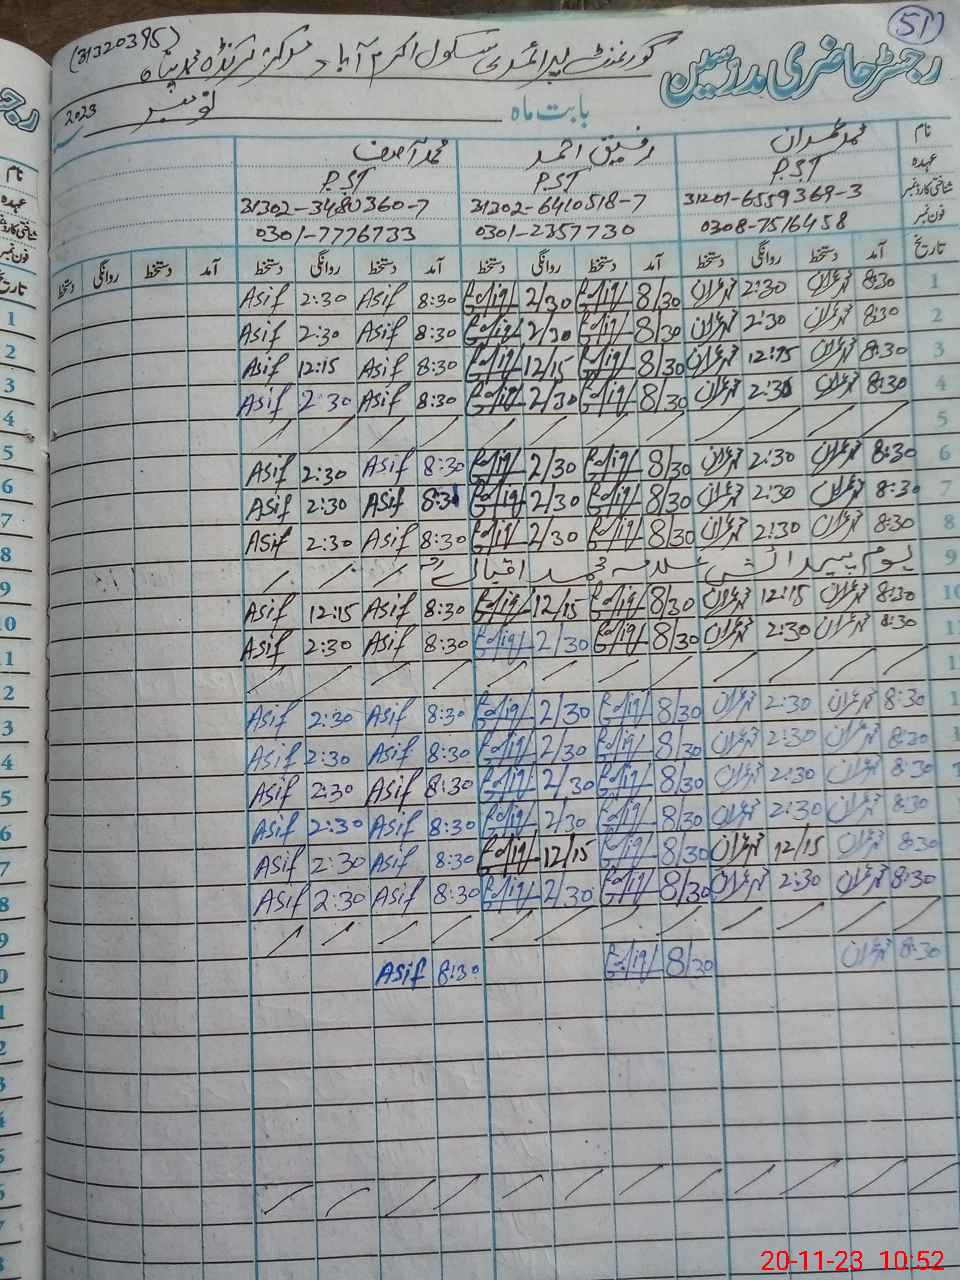 (51)
رجسٹر حاضری مدرسین گورنمنٹ پرائمری سکول اکرم آباد مرکز ترنڈہ محمد پناہ (31320395)
بابت ماہ نومبر 2023
نام محمد عمران رفیق احمد محمد آصف
عہدہ P.ST P.ST P.ST
شناختی کارڈ نمبر 31201-6559369-3 31302-6410518-7 31302-3480360-7
فون نمبر 0308-7516458 0301-2357730 0301-7776733
تاریخ آمد دستخط روانگی دستخط آمد دستخط روانگی دستخط آمد دستخط روانگی دستخط آمد دستخط روانگی دستخط
1 8:30 محمد عمران 2:30 محمد عمران 8/30 Rafiq 2/30 Rafiq 8:30 Asif 2:30 Asif
2 8:30 محمد عمران 2:30 محمد عمران 8/30 Rafiq 2/30 Rafiq 8:30 Asif 2:30 Asif
3 8:30 محمد عمران 12:15 محمد عمران 8/30 Rafiq 12/15 Rafiq 8:30 Asif 12:15 Asif
4 8:30 محمد عمران 2:30 محمد عمران 8/30 Rafiq 2/30 Rafiq 8:30 Asif 2:30 Asif
5 / / / / / / / / / / / /
6 8:30 محمد عمران 2:30 محمد عمران 8/30 Rafiq 2/30 Rafiq 8:30 Asif 2:30 Asif
7 8:30 محمد عمران 2:30 محمد عمران 8/30 Rafiq 2/30 Rafiq 8:30 Asif 2:30 Asif
8 8:30 محمد عمران 2:30 محمد عمران 8/30 Rafiq 2/30 Rafiq 8:30 Asif 2:30 Asif
9 یوم پیدائش علامہ محمد اقبال / / / /
10 8:30 محمد عمران 12:15 محمد عمران 8/30 Rafiq 12/15 Rafiq 8:30 Asif 12:15 Asif
11 8:30 محمد عمران 2:30 محمد عمران 8/30 Rafiq 2/30 Rafiq 8:30 Asif 2:30 Asif
1 / / / / / / / / / / / /
1 8:30 محمد عمران 2:30 محمد عمران 8/30 Rafiq 2/30 Rafiq 8:30 Asif 2:30 Asif
1 8:30 محمد عمران 2:30 محمد عمران 8/30 Rafiq 2/30 Rafiq 8:30 Asif 2:30 Asif
1 8:30 محمد عمران 2:30 محمد عمران 8/30 Rafiq 2/30 Rafiq 8:30 Asif 2:30 Asif
8:30 محمد عمران 2:30 محمد عمران 8/30 Rafiq 2/30 Rafiq 8:30 Asif 2:30 Asif
8:30 محمد عمران 12/15 محمد عمران 8/30 Rafiq 12/15 Rafiq 8:30 Asif 2:30 Asif
8:30 محمد عمران 2:30 محمد عمران 8/30 Rafiq 2/30 Rafiq 8:30 Asif 2:30 Asif
/ / / / / / / / / / / /
8:30 محمد عمران 8/30 Rafiq 8:30 Asif
/ / / / / / / / / / / /
20-11-23 10:52